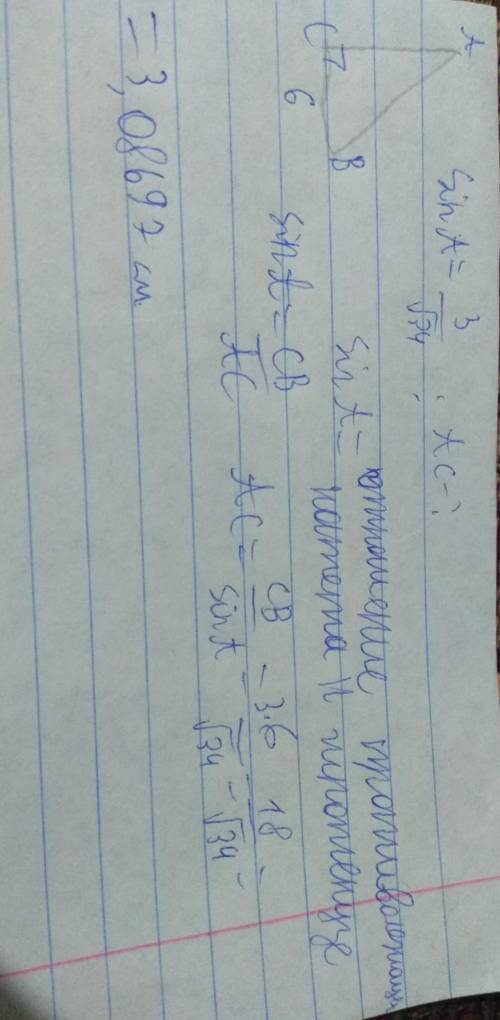 A
C
6
B
Sin A = 3/√34 ; AC - ?
Sin A = отношение противолежащ
катета к гипотенузе
Sin A = CB/AC AC = CB/sin A = 3.6/√34 = 18/√34 =
= 3,08697 см